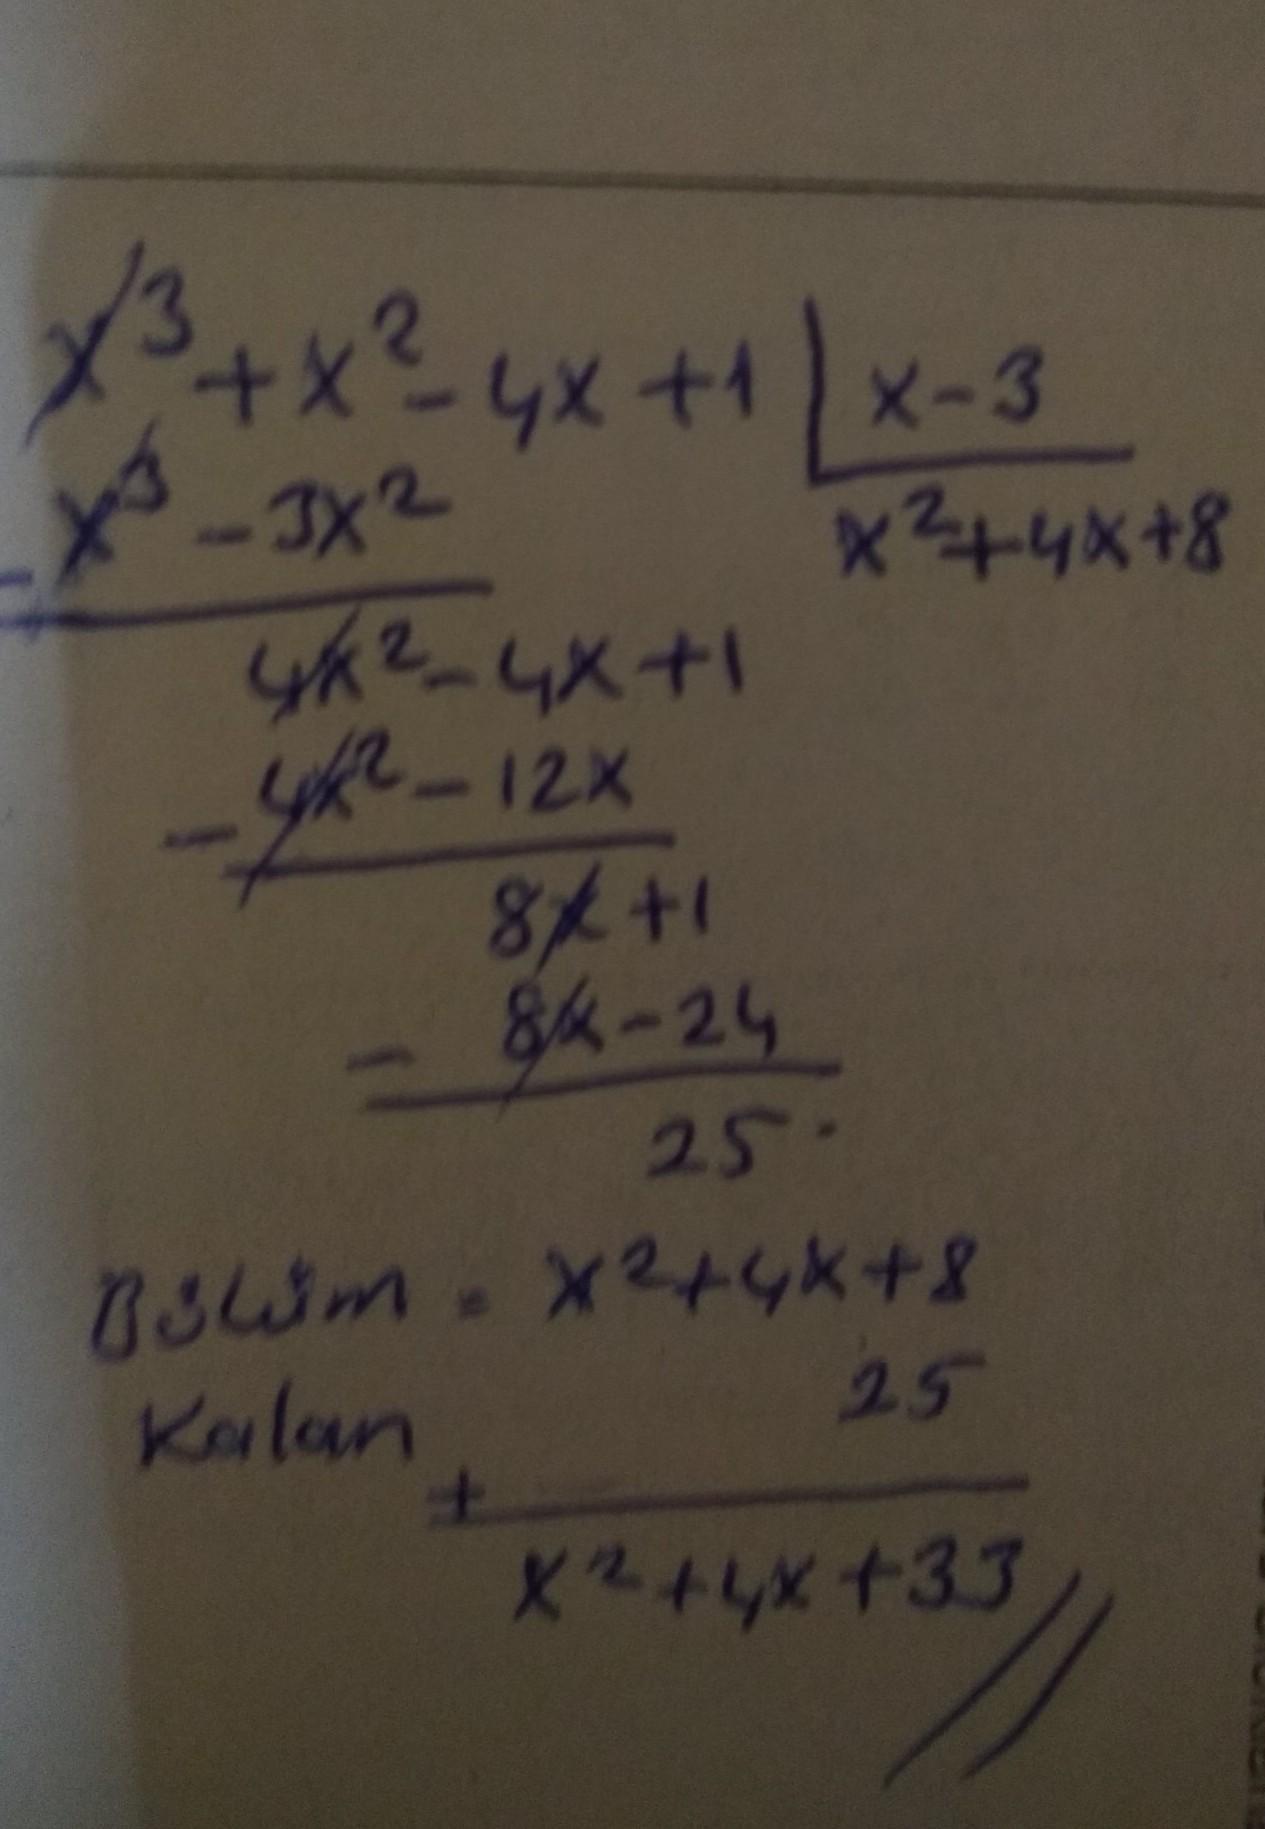 x³ + x² - 4x + 1 | x - 3
x³ - 3x² x² + 4x + 8
-
4x² - 4x + 1
4x² - 12x
-
8x + 1
- 8x - 24
25
Bölüm = x² + 4x + 8
25
Kalan
+
x² + 4x + 33 //